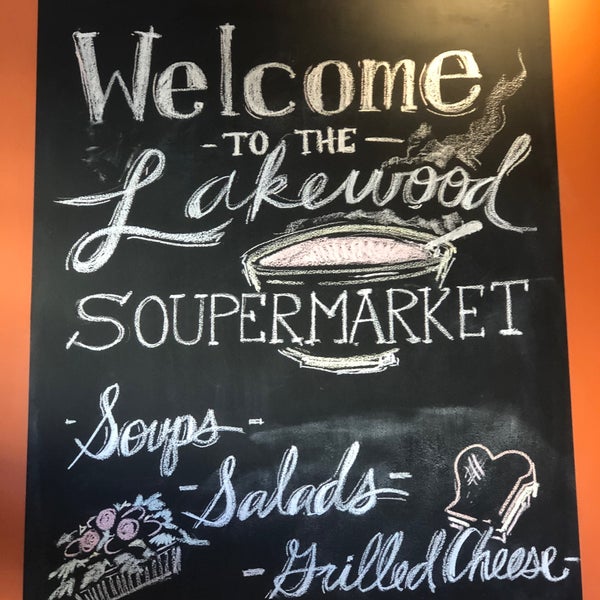 Welcome
- TO THE -
Lakewood
SOUPERMARKET
- Soups -
- Salads -
- Grilled Cheese -